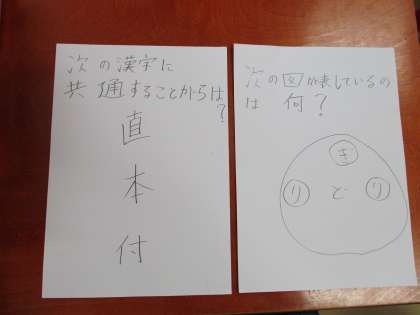 次の漢字に
共通することがらは?
直
本
付
次の図が表しているの
は何?
ぎ
り
ど
り